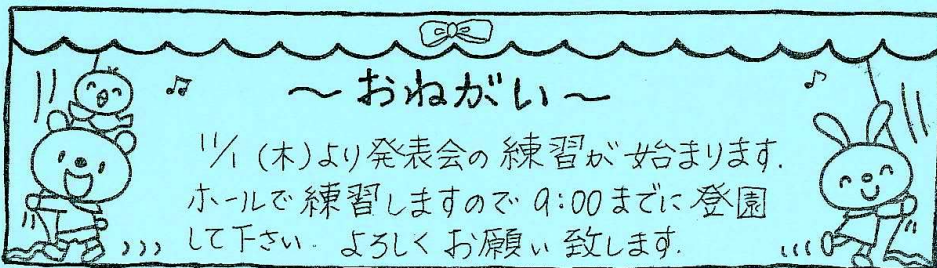 ～おねがい～
11/1(木)より発表会の練習が始まります.
ホールで練習しますので9:00までに登園
して下さい. よろしくお願い致します.